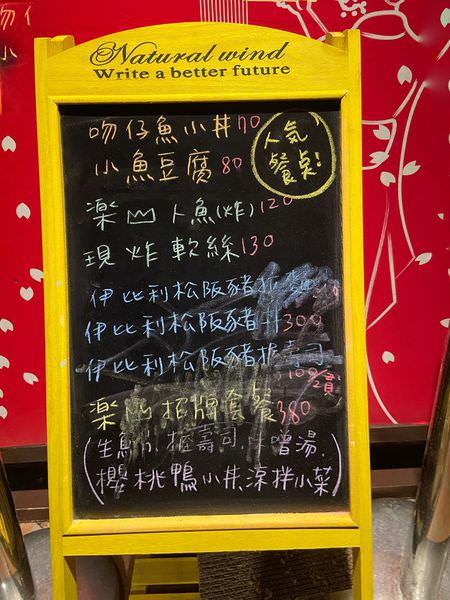 Natural wind
Write a better future
人氣
餐桌!
吻仔魚小丼70
小魚豆腐80
楽山人魚(炸)120
現炸軟絲130
伊比利松阪豬
伊比利松阪豬丼300
伊比利松阪豬握壽司
100/2貫
楽山招牌套餐380
(生魚片、握壽司、味噌湯、
櫻桃鴨小丼、涼拌小菜)
吻仔
小